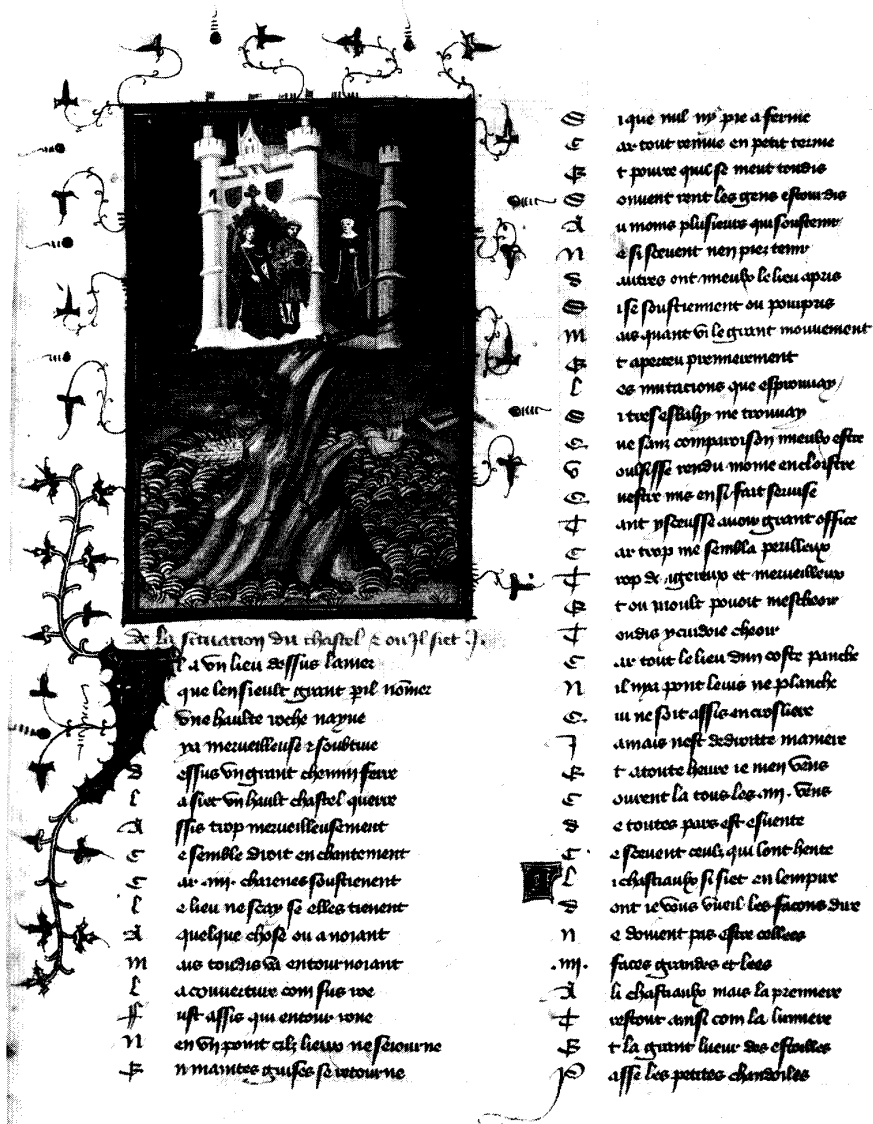 De la situation du chastel & ou Il siet J.
l a vn lieu dessus la mer
que len sieult grant peril nomer
vne haulte roche nayue
ya merueilleuse & soubtiue
Dessus vn grant chemin ferre
La siet vn hault chastel querre
Assis trop merueilleusement
Ce semble droit enchantement
Car .iiii. chaienes soustienent
Le lieu ne scay se elles tienent
A quelque chose ou a noiant
Mais toudis va entournoiant
La couuerture com sus roe
Fust assis qui entour roue
N en vn point cilz lieux ne seiourne
En maintes guises se retourne
Si que nul ny pie a ferme
Car tout remue en petit terme
Et pouure quil se meut toudis
Souuent rent les gens estourdis
Au moins plusieurs qui soustenir
Ne si sceuent nen piez tenir
Autres ont mieulx le lieu apris
Si se soustiennent ou pourpris
Mais quant vi le grant mouuement
Et aperceu premierement
Les mutacions que esprouuay
Si tres esbahy me trouuay
Que sanz comparoison mieulx estre
Voulsisse rendu moine en cloistre
Questre mis en si fait seruise
Tant y sceusse auoir grant office
Car trop me sembla perilleux
Trop dangereux et merueilleux
Et ou moult pouoit mescheoir
Toudis y cuidoie cheoir
Car tout le lieu dun coste panche
N il nya pont leuis ne planche
Qui ne soit assis en crosliere
Jamais nest de droitte maniere
Et a toute heure ie men vens
Queurent la tous les .iiii. vens
De toutes pars est esuente
Ce sceuent ceulz qui lont hente
Li chastiaulx si siet en lempire
Dont ie vous vueil les facons dire
Ne doiuent pas estre cellees
.iiii. faces grandes et lees
A li chastiaulx mais la premiere
Trestout ainsi com la lumiere
Et la grant lueur des estoilles
Passe les petites chandoiles